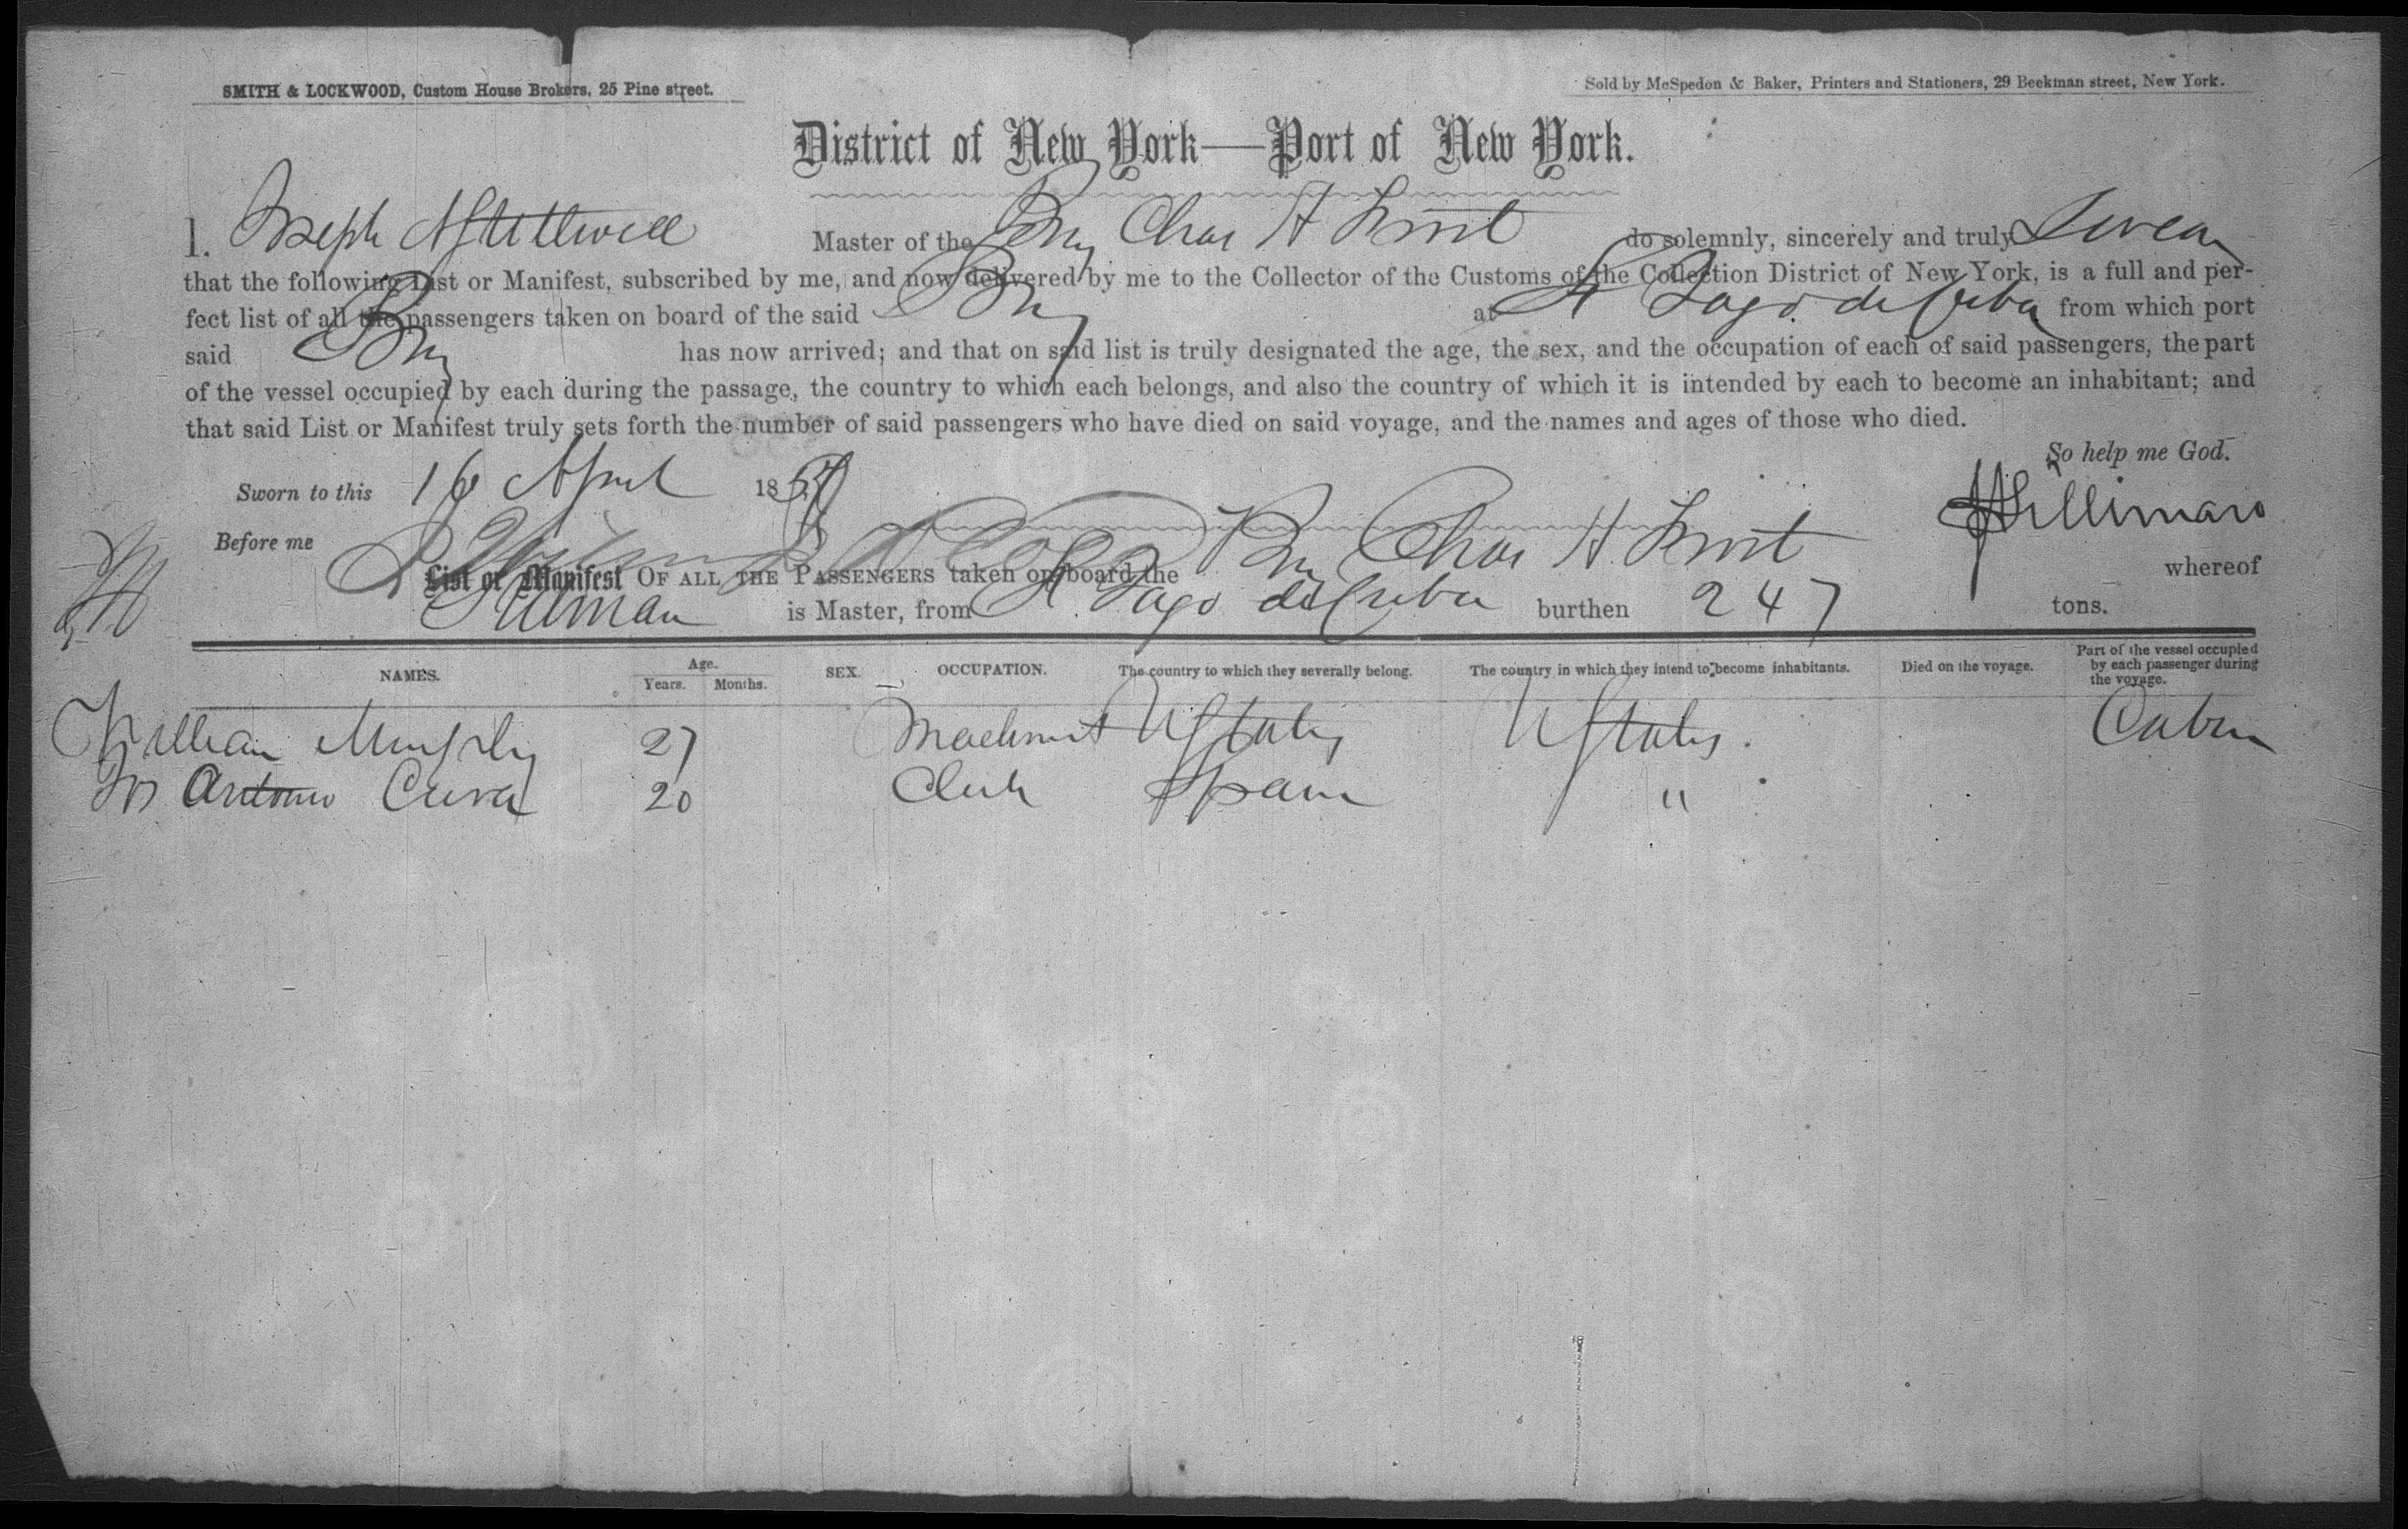 SMITH & LOCKWOOD, Custom House Brokers, 25 Pine street.
Sold by McSpedon & Baker, Printers and Stationers, 29 Beekman street, New York.
District of New York—Port of New York.
I. Joseph Master of the Brig Chas H do solemnly, sincerely and truly Swear
that the following List or Manifest, subscribed by me, and now delivered by me to the Collector of the Customs of the Collection District of New York, is a full and per-
fect list of all the passengers taken on board of the said Brig at St Jago de Cuba from which port
said Brig has now arrived; and that on said list is truly designated the age, the sex, and the occupation of each of said passengers, the part
of the vessel occupied by each during the passage, the country to which each belongs, and also the country of which it is intended by each to become an inhabitant; and
that said List or Manifest truly sets forth the number of said passengers who have died on said voyage, and the names and ages of those who died.
So help me God.
Sworn to this 16 April 18
Before me
List or Manifest OF ALL THE PASSENGERS taken on board the Brig Chas H whereof
is Master, from St Jago de Cuba burthen 247 tons.
NAMES. Age. Years. Months. SEX. OCCUPATION. The country to which they severally belong. The country in which they intend to become inhabitants. Died on the voyage. Part of the vessel occupied by each passenger during the voyage.
William Murphy 27 Machinist U States U States. Cabin
Antonio 20 Clerk Spain "